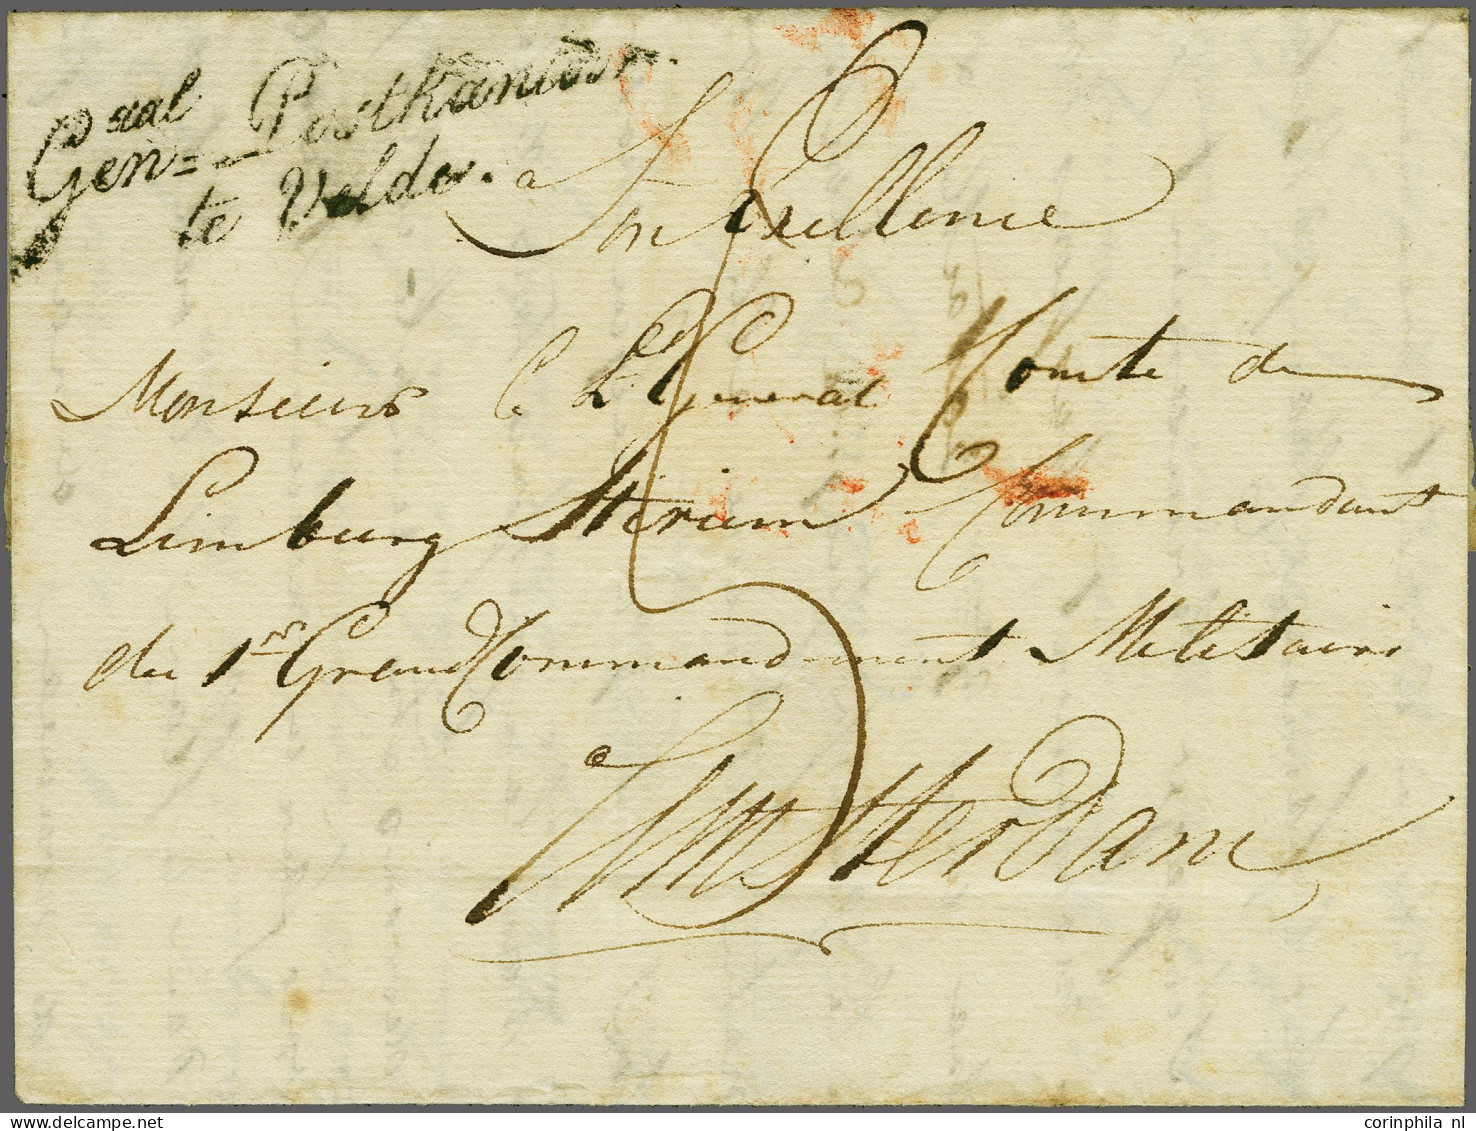 Gen=raal Postkantoor.
te Velde.
a Son Excellence
Monsieur le Lt General Comte de
Limburg Stirum, Commandant
du 1er Grand Commandement Militaire
Amsterdam
corinphila nl